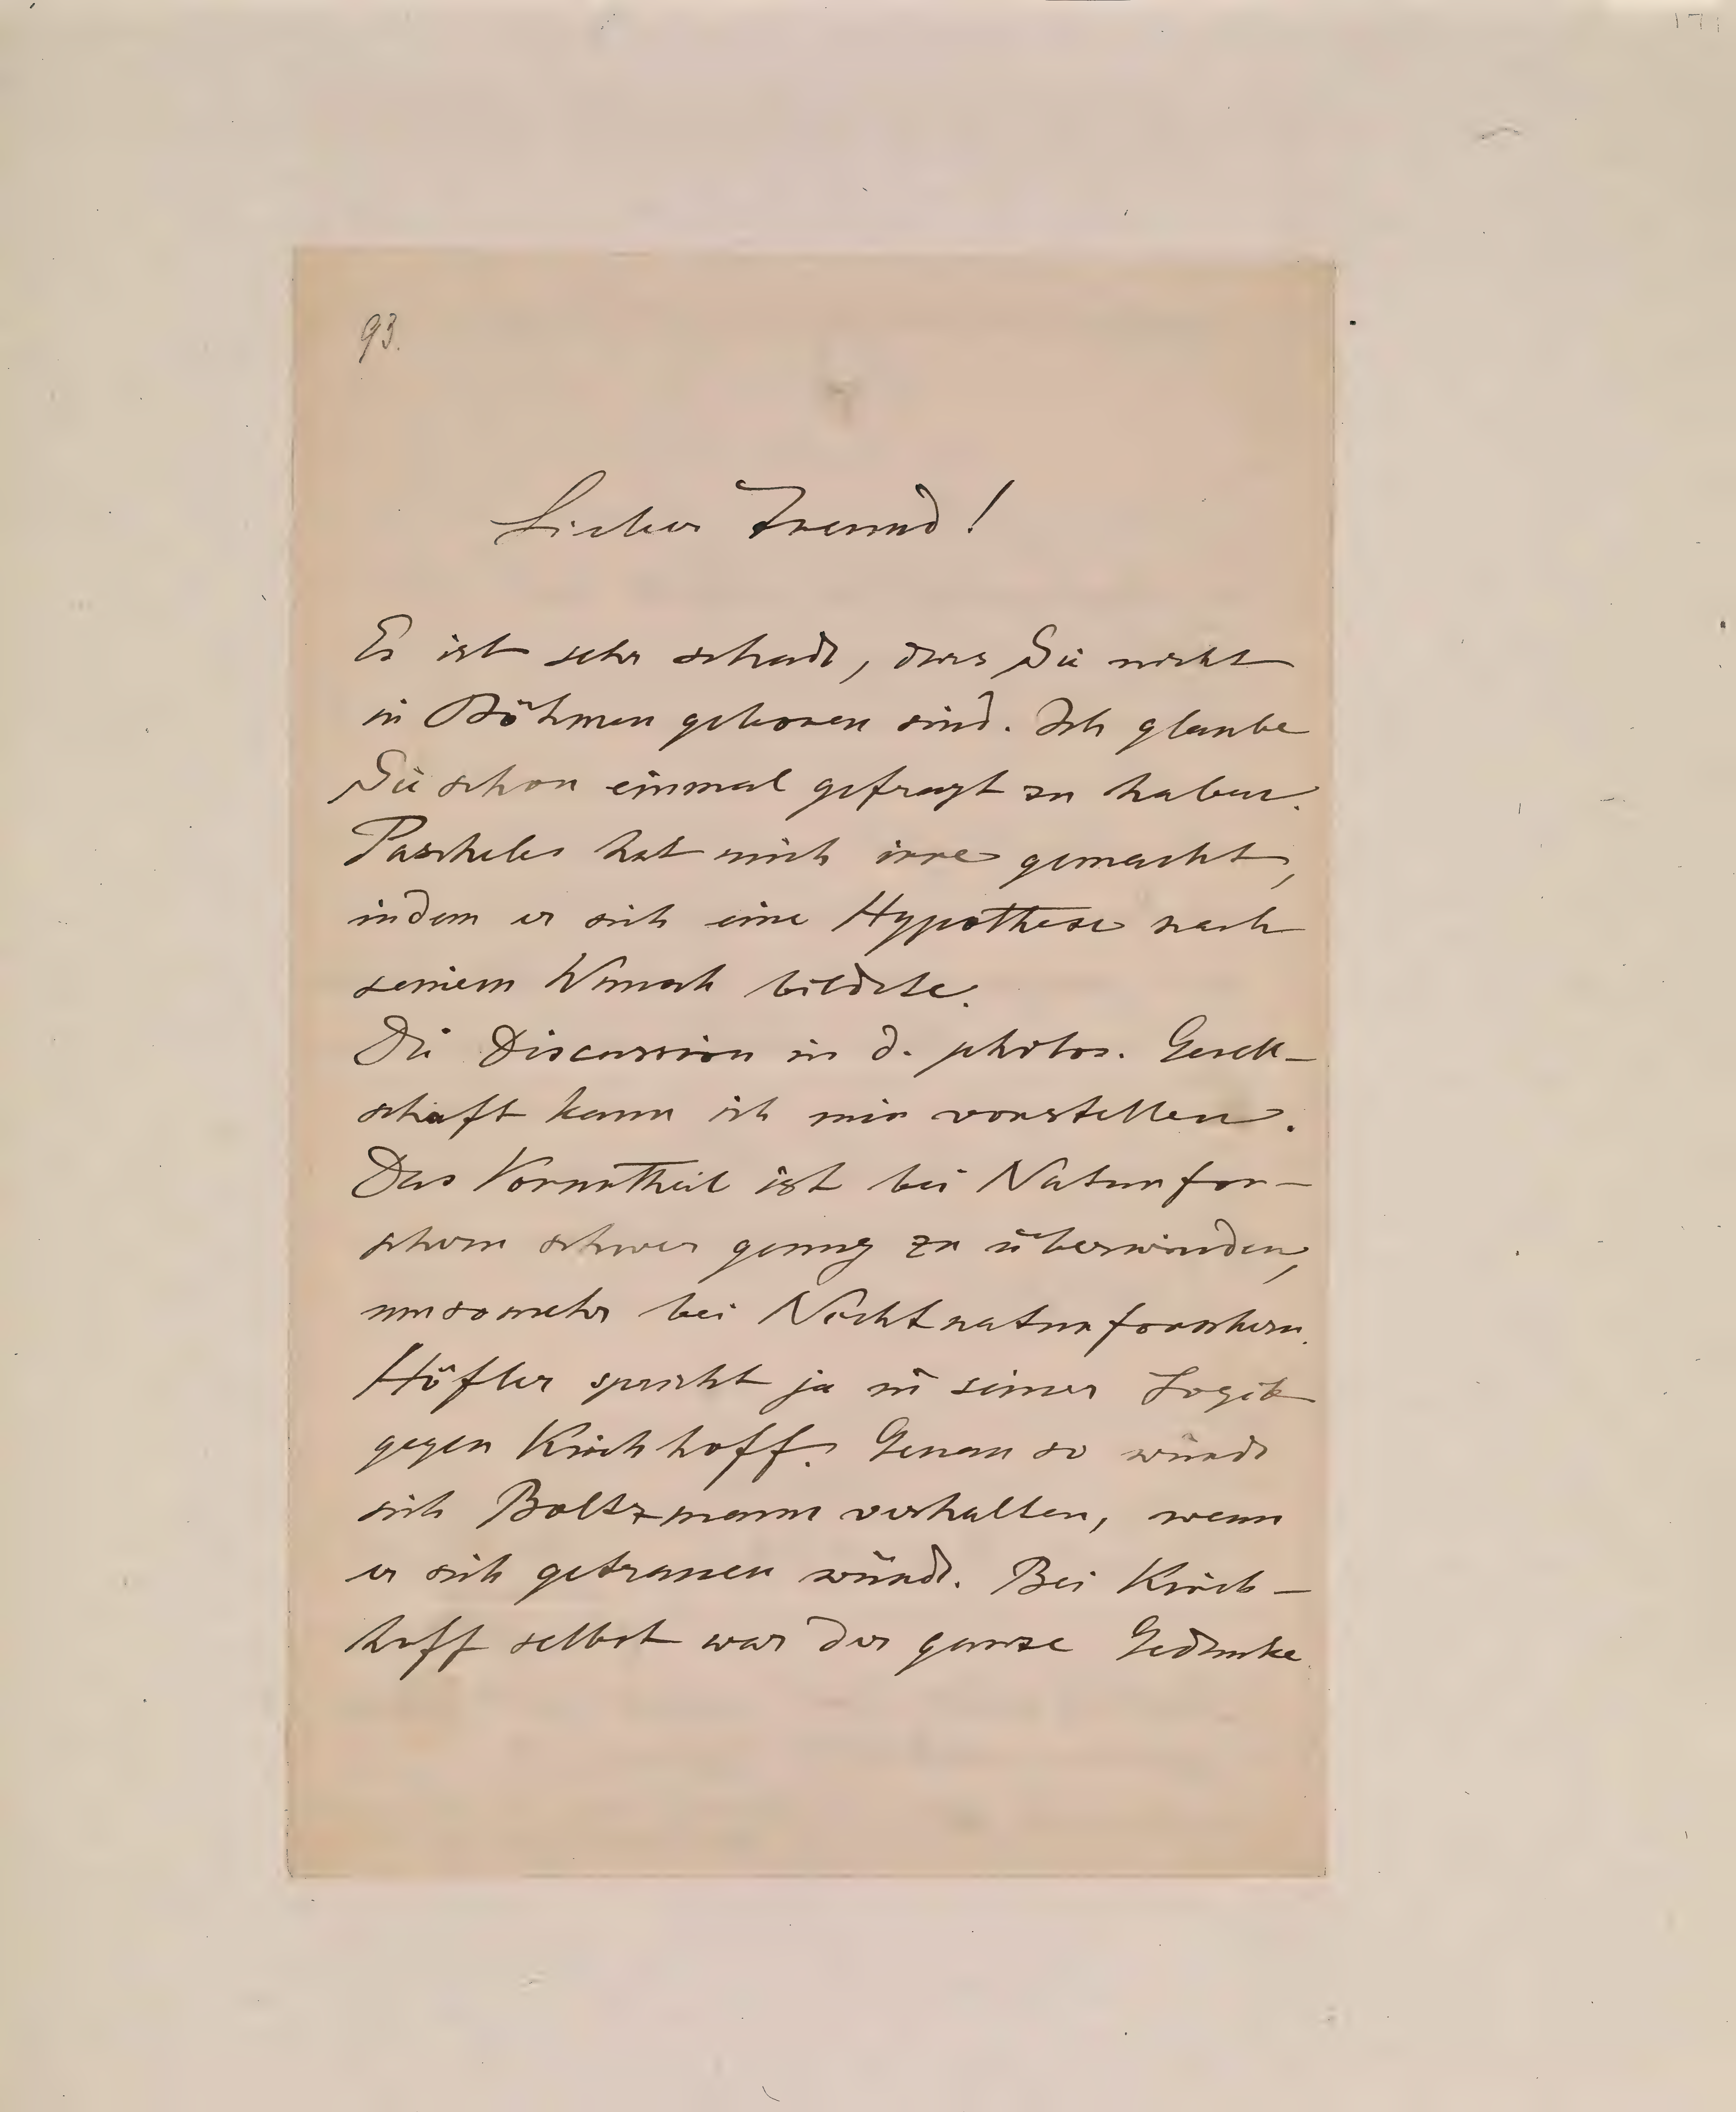 93.
Lieber Freund!
Es ist sehr schade, dass Sie nicht
in Böhmen geboren sind. Ich glaube
Sie schon einmal gefragt zu haben.
Pascheles hat mich irre gemacht,
indem er sich eine Hypothese nach
seinem Wunsch bildete.
Die Discussion in d. philos. Gesell-
schaft kann ich mir vorstellen.
Das Vorurtheil ist bei Naturfor-
schern schwer genug zu überwinden,
umsomehr bei Nichtnaturforschern.
Höfler spricht ja in seiner Logik
gegen Kirchhoff. Genau so würde
sich Boltzmann verhalten, wenn
er sich getrauen würde. Bei Kirch-
hoff selbst war der ganze Gedanke